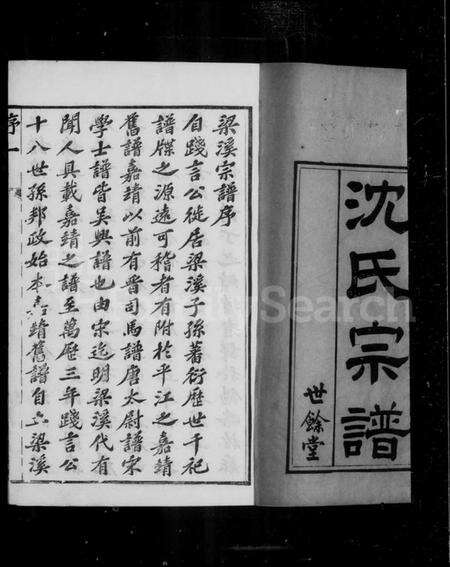 沈氏宗譜
世餘堂
梁溪宗譜序
自踐言公徙居梁溪子孫著衍歷世千祀
譜牒之源遠可稽者有附於平江之嘉靖
舊譜嘉靖以前有晉司馬譜唐太尉譜宋
學士譜皆吳興譜也由宋迄明梁溪代有
聞人具載嘉靖之譜至萬歷三年踐言公
十八世孫邦政始本嘉靖舊譜自立梁溪
序一